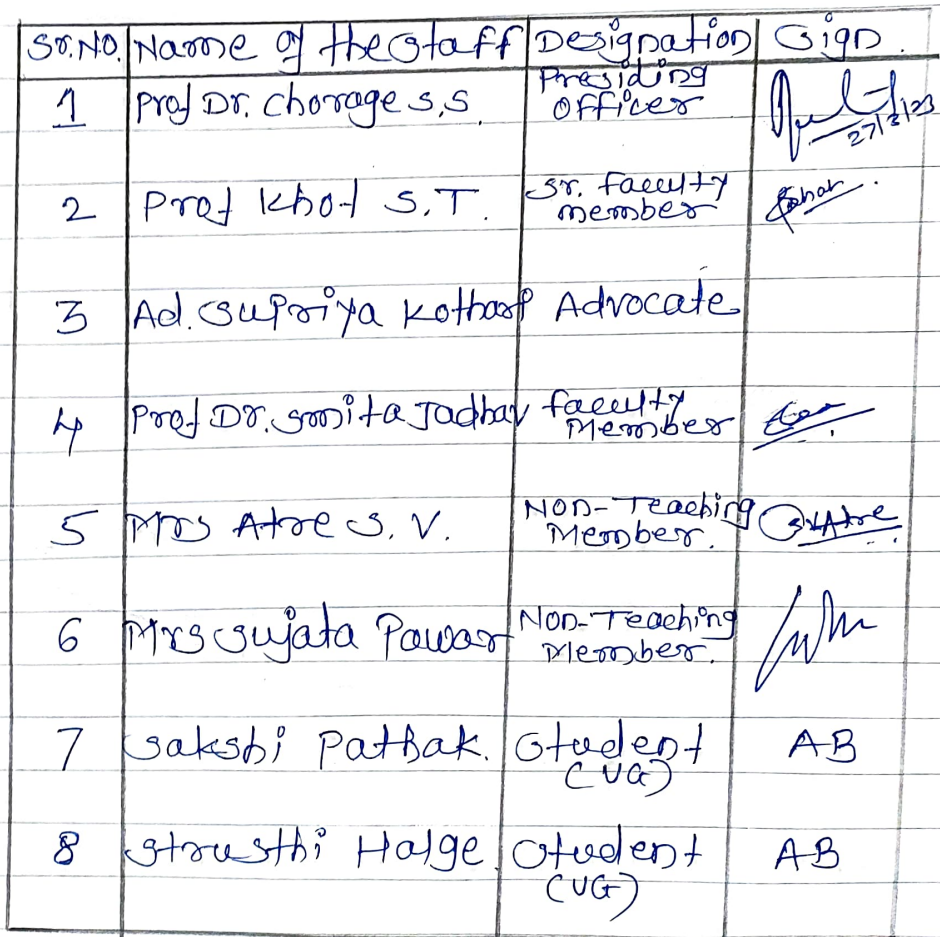 Sr.No. Name of the Staff Designation Sign.
1 Prof Dr. Chorage S.S. Presiding Officer 27/3/23
2 Prof Khot S.T. Sr. Faculty member
3 Ad. Supriya Kothari Advocate
4 Prof Dr. Smita Jadhav Faculty Member
5 Mrs Atre S. V. Non-Teaching Member. SVAtre
6 Mrs Sujata Pawar Non-Teaching Member.
7 Sakshi Pathak. Student (UG) AB
8 Strusthi Halge Student (UG) AB